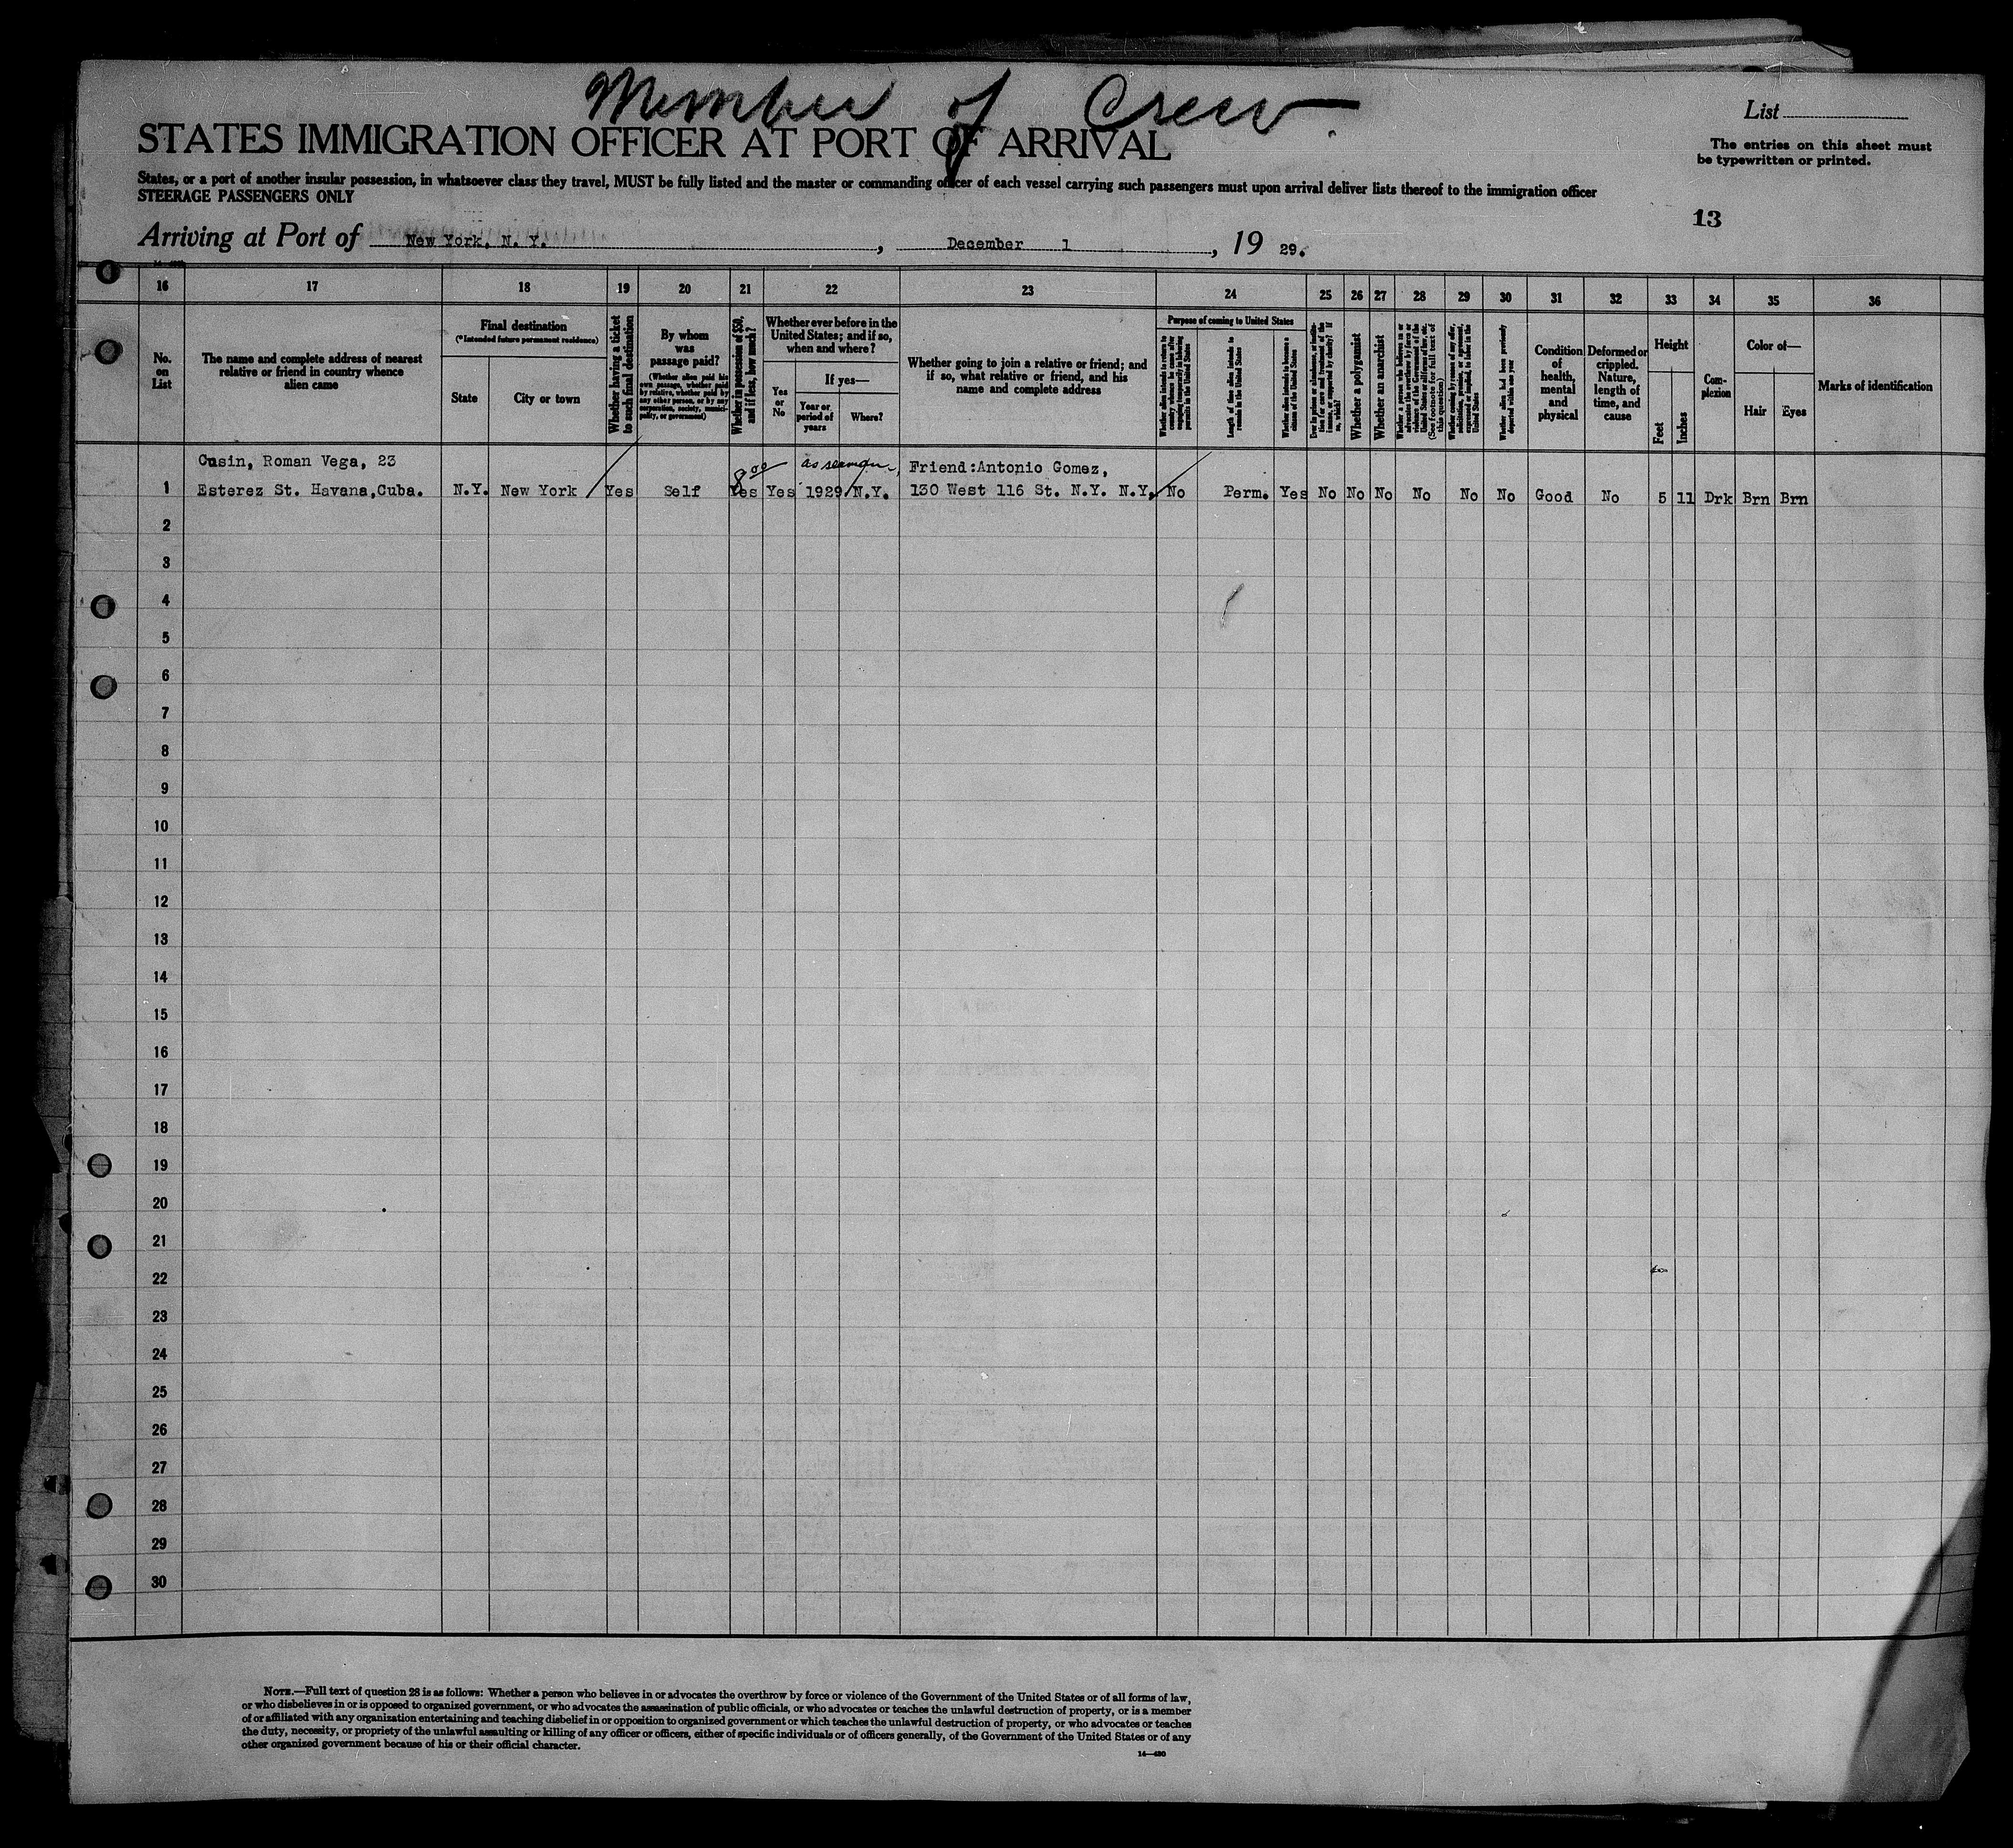 Member of Crew
STATES IMMIGRATION OFFICER AT PORT OF ARRIVAL
List
The entries on this sheet must
be typewritten or printed.
States, or a port of another insular possession, in whatsoever class they travel, MUST be fully listed and the master or commanding officer of each vessel carrying such passengers must upon arrival deliver lists thereof to the immigration officer
STEERAGE PASSENGERS ONLY
13
Arriving at Port of New York, N. Y. , December 1 , 19 29.
16 17 18 19 20 21 22 23 24 25 26 27 28 29 30 31 32 33 34 35 36
No. on List
The name and complete address of nearest
relative or friend in country whence
alien came
Final destination
(*Intended future permanent residence)
State
City or town
Whether having a ticket
to such final destination
By whom
was
passage paid?
(Whether alien paid his
own passage, whether paid
by relative, whether paid by
any other person, or by any
corporation, society, munici-
pality, or government)
Whether in possession of $50,
and if less, how much?
Whether ever before in the
United States; and if so,
when and where?
Yes
or
No
If yes—
Year or
period of
years
Where?
Whether going to join a relative or friend; and
if so, what relative or friend, and his
name and complete address
Purpose of coming to United States
Whether alien intends to return to
country whence he came after
engaging temporarily in laboring
pursuits in the United States
Length of time alien intends to
remain in the United States
Whether alien intends to become a
citizen of the United States
Whether a polygamist
Whether an anarchist
Condition
of
health,
mental
and
physical
Deformed or
crippled.
Nature,
length of
time, and
cause
Height
Feet
Inches
Com-
plexion
Color of—
Hair
Eyes
Marks of identification
Cusin, Roman Vega, 23
8 00
as seaman,
Friend:Antonio Gomez,
1 Esterez St. Havana,Cuba. N.Y. New York Yes Self Yes Yes 1929 N.Y. 130 West 116 St. N.Y. N.Y. No Perm. Yes No No No No No No Good No 5 11 Drk Brn Brn
2
3
4
5
6
7
8
9
10
11
12
13
14
15
16
17
18
19
20
21
22
23
24
25
26
27
28
29
30
NOTE.—Full text of question 28 is as follows: Whether a person who believes in or advocates the overthrow by force or violence of the Government of the United States or of all forms of law,
or who disbelieves in or is opposed to organized government, or who advocates the assassination of public officials, or who advocates or teaches the unlawful destruction of property, or is a member
of or affiliated with any organization entertaining and teaching disbelief in or opposition to organized government or which teaches the unlawful destruction of property, or who advocates or teaches
the duty, necessity, or propriety of the unlawful assaulting or killing of any officer or officers, either of specific individuals or of officers generally, of the Government of the United States or of any
other organized government because of his or their official character.
14—430